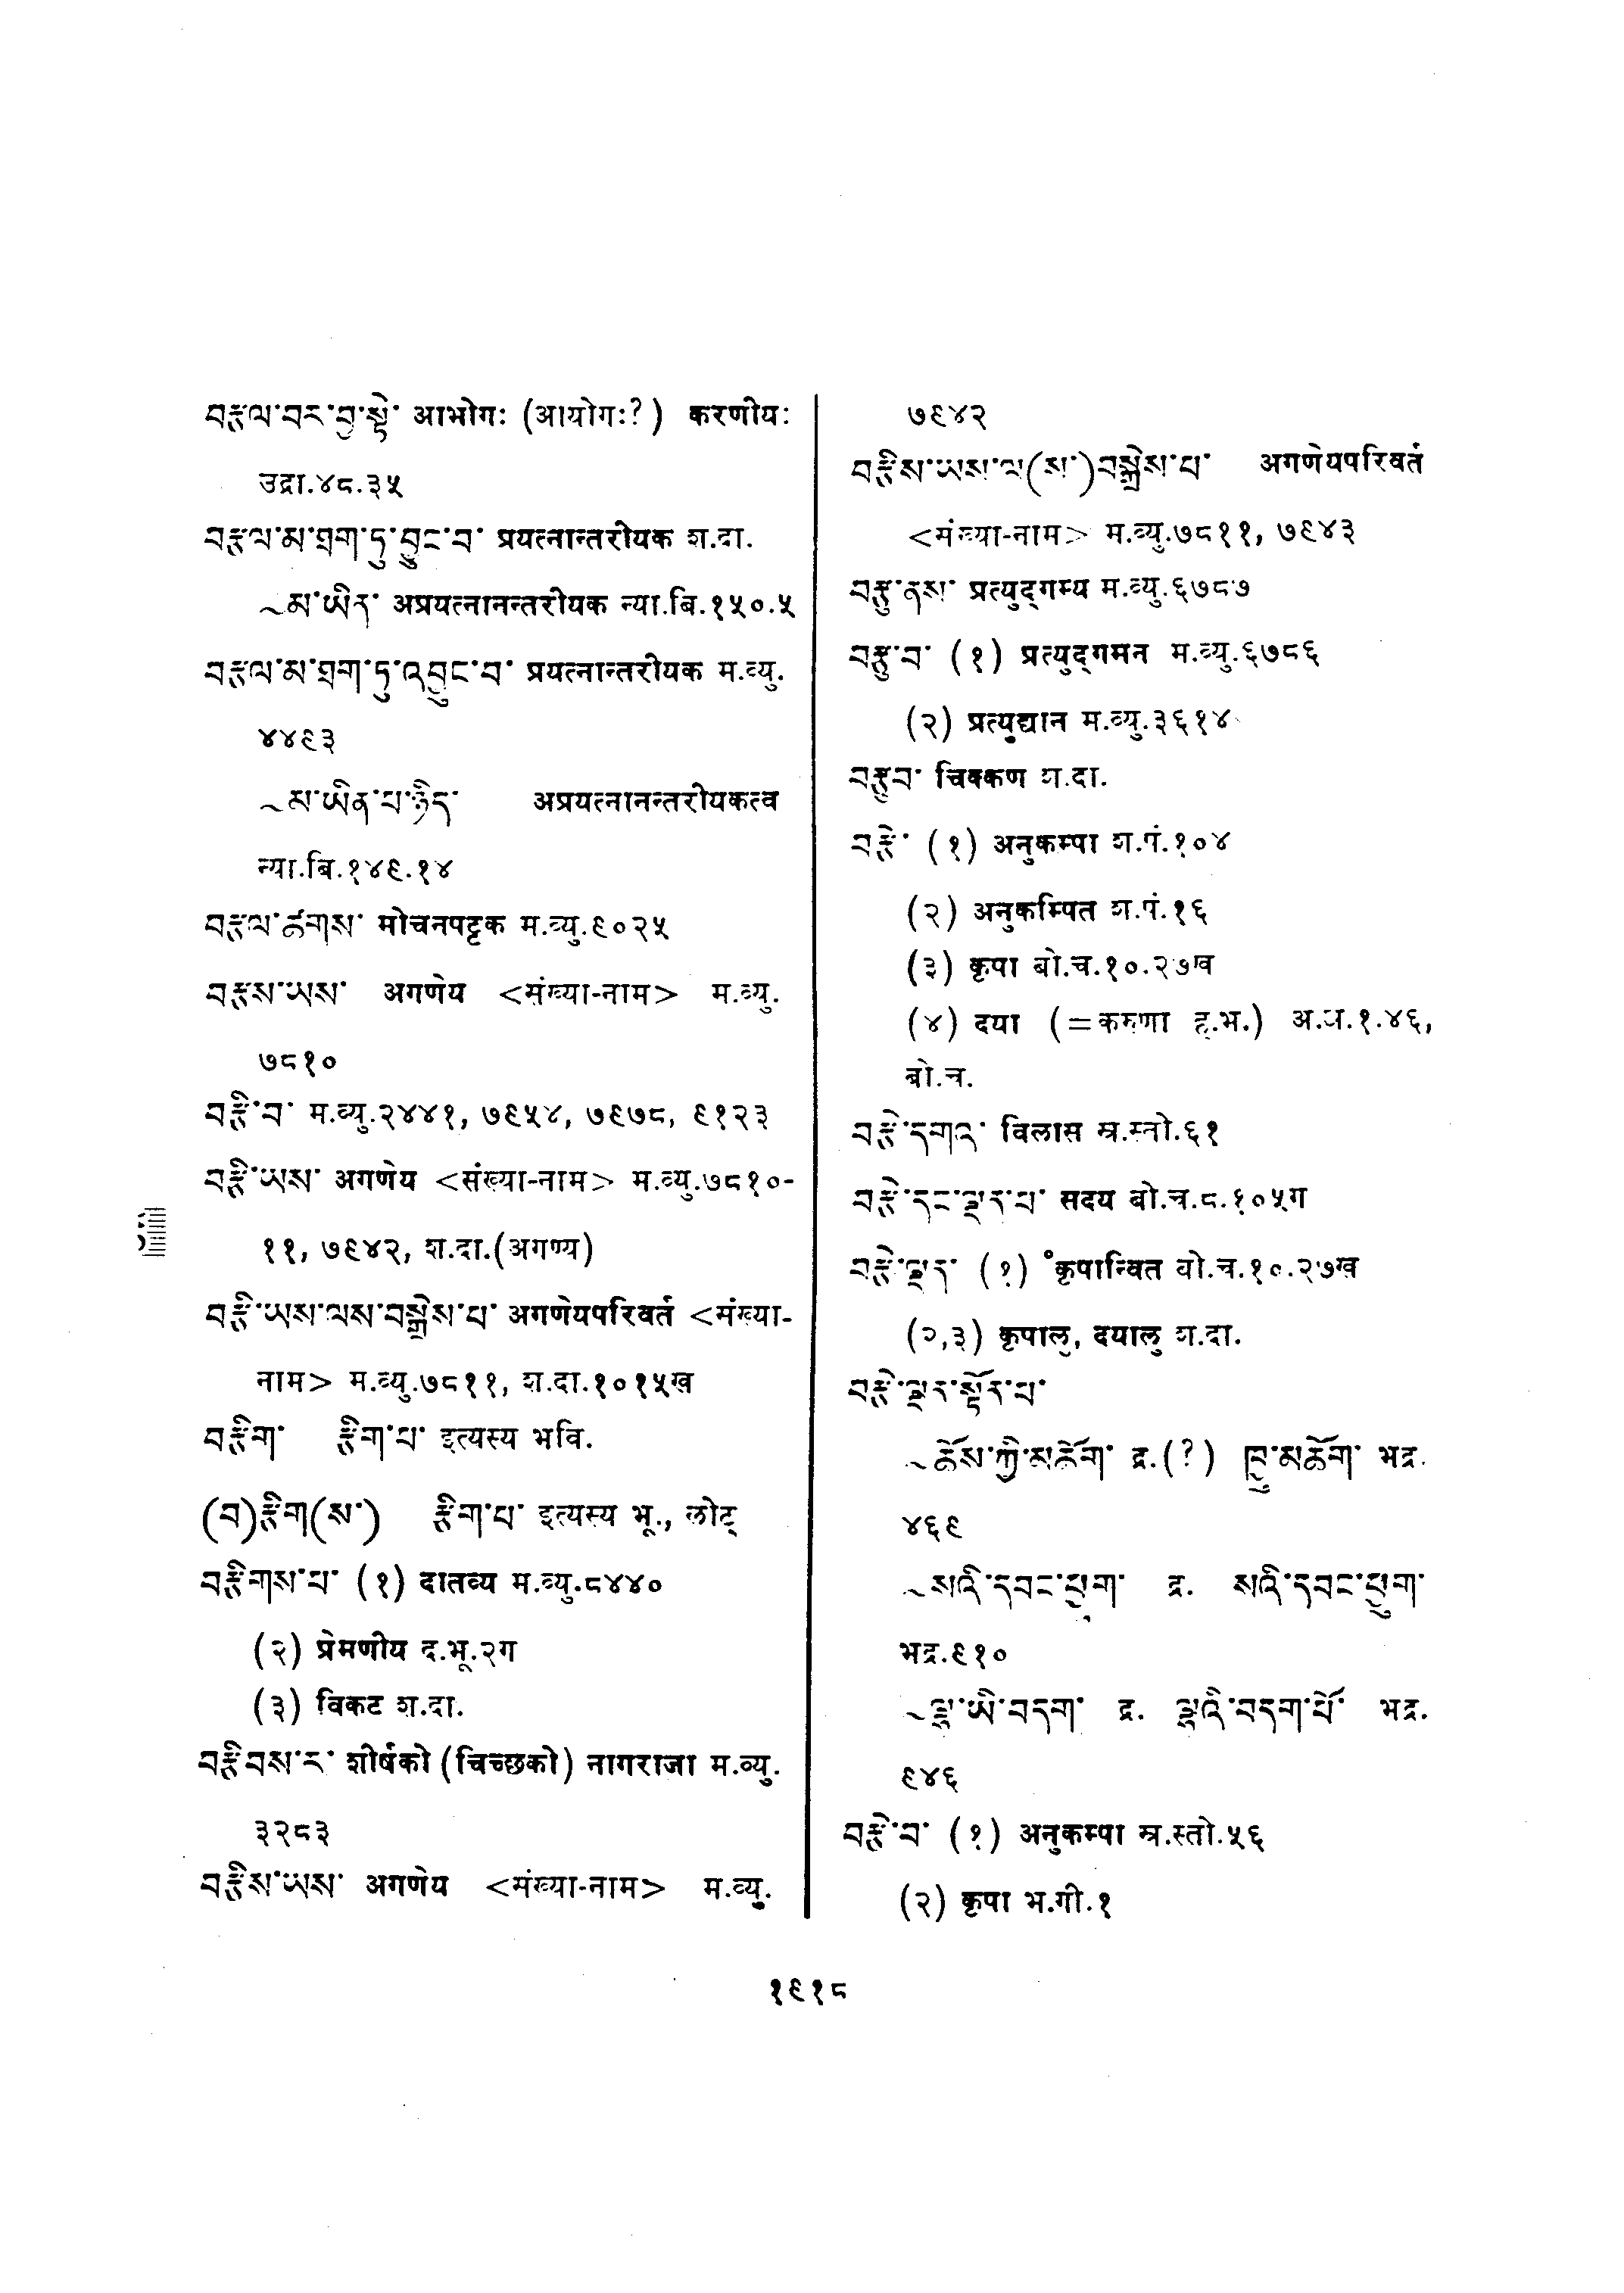 བརྩལ་བར་བྱ་སྟེ་ आभोगः (आयोगः?) करणीयः
उद्रा.४८.३५
བརྩལ་མ་ཐག་ཏུ་བྱུང་བ་ प्रयत्नान्तरीयक श.दा.
~མ་ཡིན་ अप्रयत्नानन्तरीयक न्या.बि.१५०.५
བརྩལ་མ་ཐག་ཏུ་འབྱུང་བ་ प्रयत्नान्तरीयक म.व्यु.
४४९३
~མ་ཡིན་པ་ཉིད་ अप्रयत्नानन्तरीयकत्व
न्या.बि.१४९.१४
བརྩལ་ཚགས་ मोचनपट्टक म.व्यु.९०२५
བརྩས་ཡས་ अगणेय <संख्या-नाम> म.व्यु.
७८१०
བརྩི་བ་ म.व्यु.२४४१, ७९५४, ७९७८, ९१२३
བརྩི་ཡས་ अगणेय <संख्या-नाम> म.व्यु.७८१०-
११, ७९४२, श.दा.(अगण्य)
བརྩི་ཡས་ལས་བསྒྲེས་པ་ अगणेयपरिवर्त <संख्या-
नाम> म.व्यु.७८११, श.दा.१०१५ख
བརྩིག་ རྩིག་པ་ इत्यस्य भवि.
(བ)རྩིག(ས་) རྩིག་པ་ इत्यस्य भू., लोट्
བརྩིགས་པ་ (१) दातव्य म.व्यु.८४४०
(२) प्रेमणीय द.भू.२ग
(३) विकट श.दा.
བརྩིབས་ར་ शीर्षको (चिच्छको) नागराजा म.व्यु.
३२८३
བརྩིས་ཡས་ अगणेय <संख्या-नाम> म.व्यु.
७९४२
བརྩིས་ཡས་ལ(ས་)བསྒྲེས་པ་ अगणेयपरिवर्त
<संख्या-नाम> म.व्यु.७८११, ७९४३
བརྩུ་ནས་ प्रत्युद्गम्य म.व्यु.६७८७
བརྩུ་བ་ (१) प्रत्युद्गमन म.व्यु.६७८६
(२) प्रत्युद्यान म.व्यु.३६१४
བརྩུབ་ चिक्कण श.दा.
བརྩེ་ (१) अनुकम्पा श.पं.१०४
(२) अनुकम्पित श.पं.१६
(३) कृपा बो.च.१०.२७ख
(४) दया (=करुणा ह.भ.) अ.प्र.१.४६,
बो.च.
བརྩེ་དགའ་ विलास स्र.स्तो.६१
བརྩེ་དང་ལྡན་པ་ सदय बो.च.८.१०५ग
བརྩེ་ལྡན་ (१) °कृपान्वित बो.च.१०.२७ख
(२,३) कृपालु, दयालु श.दा.
བརྩེ་ལྡན་སྟོན་པ་
~ཆོས་ཀྱི་མཆོག་ द्र.(?) ཁྱུ་མཆོག་ भद्र.
४६९
~སའི་དབང་ཕྱུག་ द्र. སའི་དབང་ཕྱུག་
भद्र.९१०
~ལྷ་ཡི་བདག་ द्र. ལྷའི་བདག་པོ་ भद्र.
९४६
བརྩེ་བ་ (१) अनुकम्पा स्र.स्तो.५६
(२) कृपा भ.गी.१
१९१८